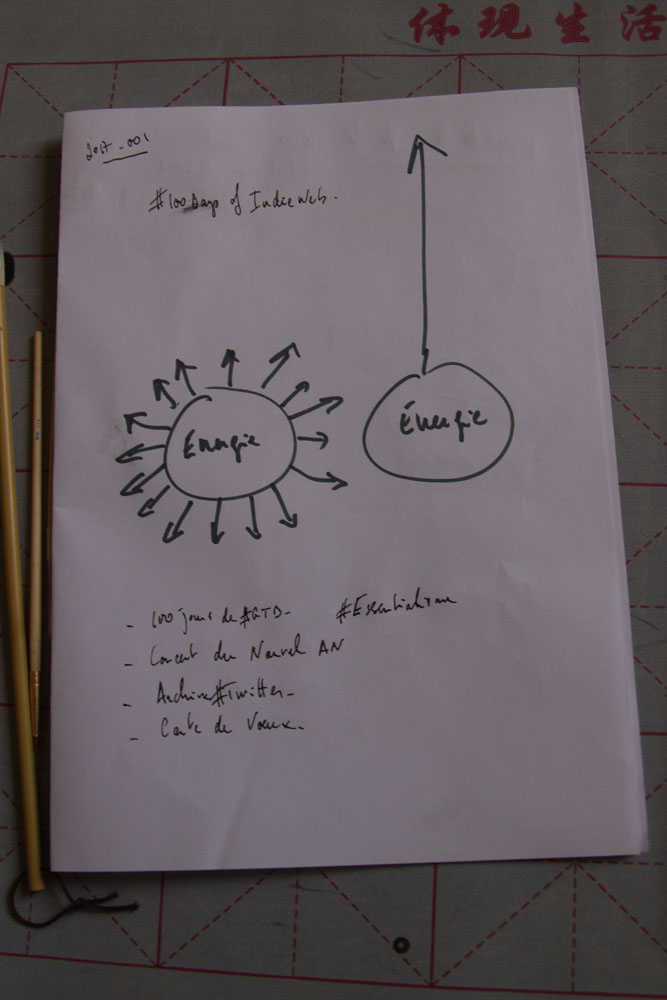 体现生活
2017-001
#100Days of IndieWeb.
Énergie
Énergie
- 100 jours de #GTD- #Essentialisme
- Concert du Nouvel AN
- Archive #Twitter-
- Carte de Voeux.